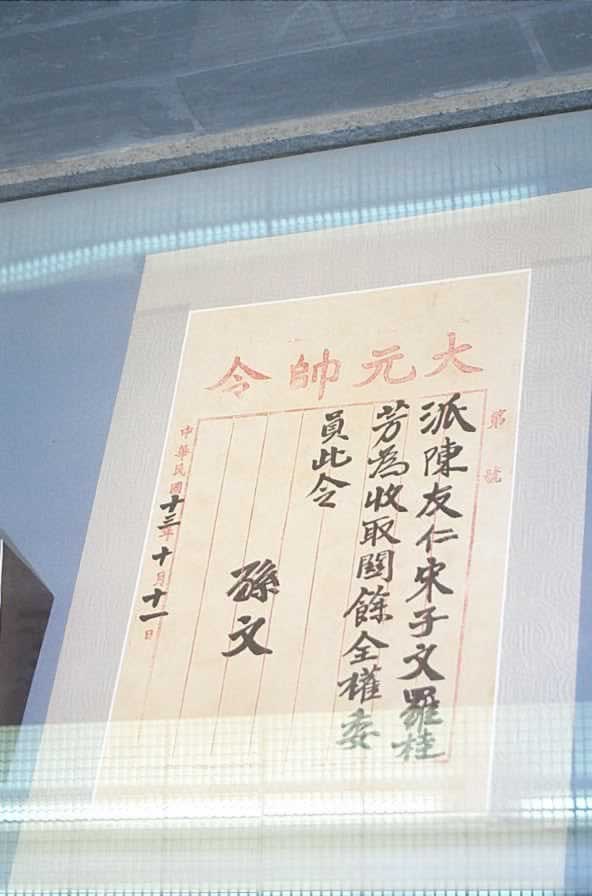 大元帥令
第 號
派陳友仁宋子文羅桂
芳為收取關餘全權委
員此令
孫文
中華民國十三年十月十一日